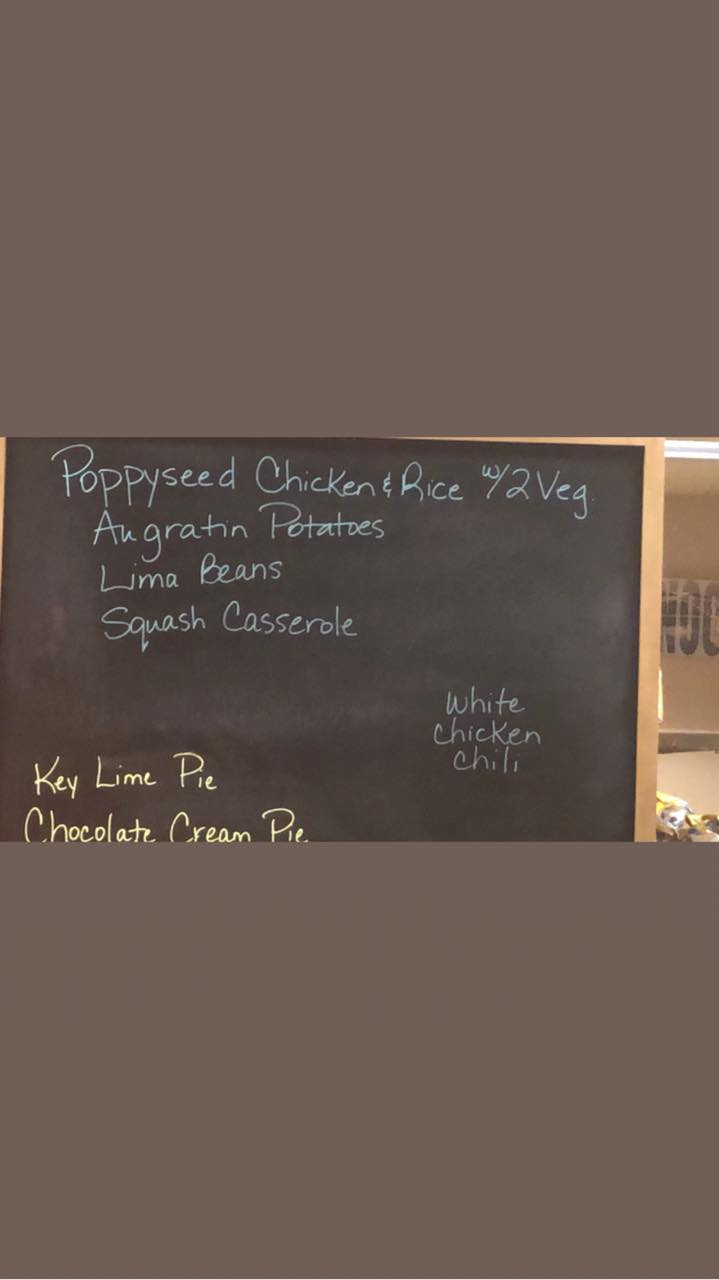 Poppyseed Chicken & Rice w/2 Veg.
Augratin Potatoes
Lima Beans
Squash Casserole
White
chicken
chili
Key Lime Pie
Chocolate Cream Pie